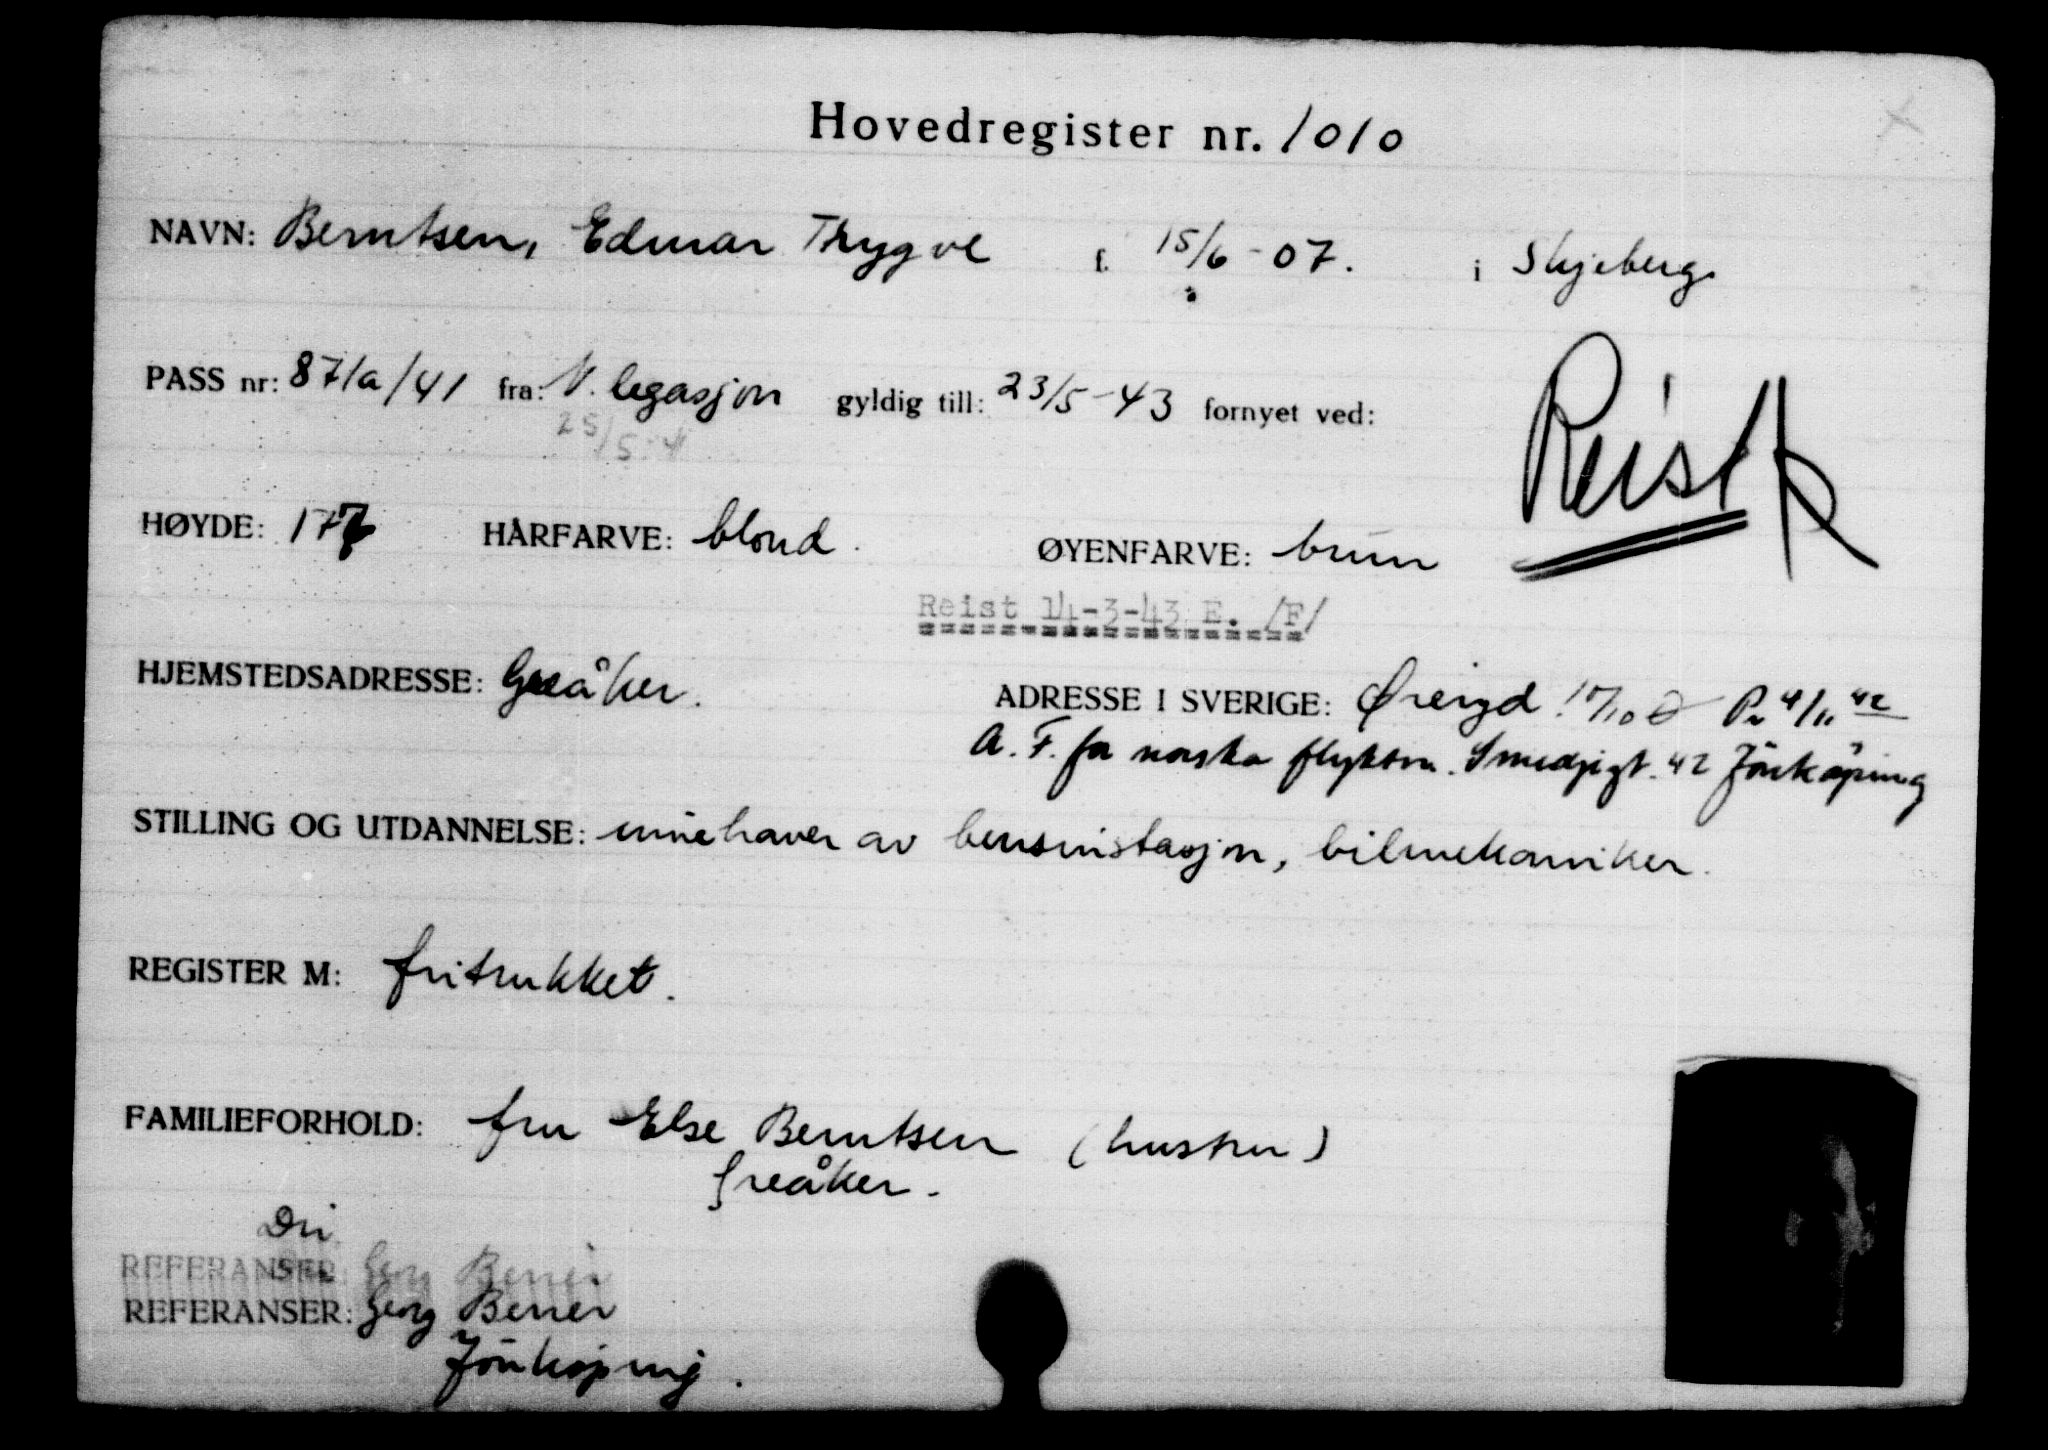 Hovedregister nr. 1010
NAVN: Berntsen, Edmar Thrygve f. 15/6-07. i Skjeberg.
PASS nr: 871a/41 fra: N. legasjon gyldig till: 23/5-43 fornyet ved:
25/5-41
Reist
HØYDE: 177 HÅRFARVE: blond. ØYENFARVE: brun
Reist 14-3-43 E. /F/
HJEMSTEDSADRESSE: Greåker. ADRESSE I SVERIGE: Øreryd 4/11 42
A. F. for norska flyktn. Smedjegt. 42 Jönköping
STILLING OG UTDANNELSE: innehaver av bensinstasjon, bilmekaniker.
REGISTER M: fritrukket.
FAMILIEFORHOLD: fru Else Berntsen (hustru)
Greåker.
Dir.
REFERANSER: Georg Bener
REFERANSER: Georg Bener
Jönköping.